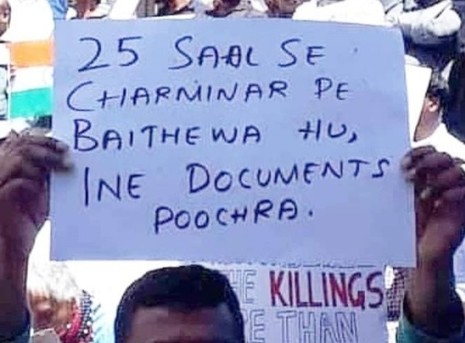 25 SAAL SE
CHARMINAR PE
BAITHEWA HU,
INE DOCUMENTS
POOCHRA.
KILLINGS
THAN